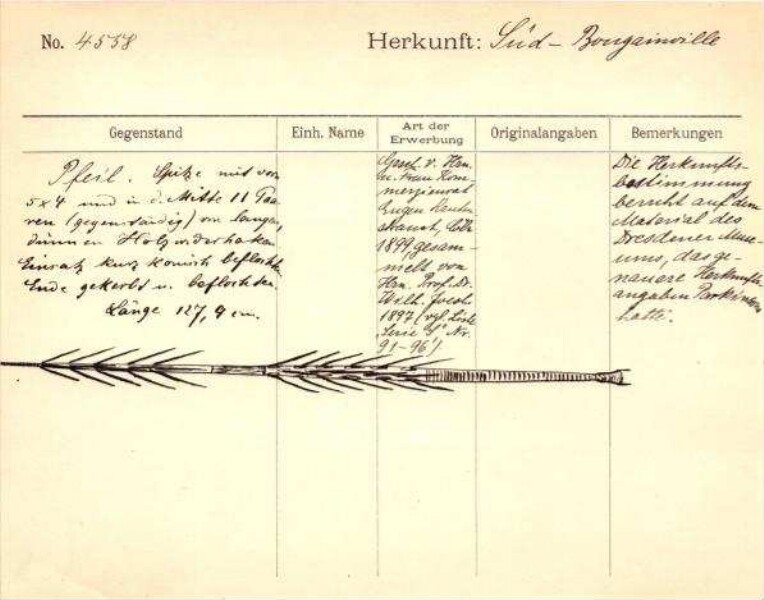 No. 4538
Herkunft: Süd-Bougainville
Gegenstand
Einh. Name
Art der Erwerbung
Originalangaben
Bemerkungen
Pfeil. Spitze mit vorn
5 x 4 und in d. Mitte 11 Paa-
ren (gegenständig) von langen,
dünnen Holzwiderhaken.
Einsatz kurz konisch beflochten.
Ende gekerbt u. beflochten.
Länge 127,9 cm.
Gesch. v. Hrn.
u. Frau Kom-
merzienrat
Eugen Rauten-
strauch, Cöln
1899, gesam-
melt von
Hrn. Prof. Dr.
Wilh. Joest
1897 (vgl. Liste
„Serie S" Nr.
91-96)
Die Herkunfts-
bestimmung
beruht auf dem
Material des
Dresdener Muse-
ums, das ge-
nauere Herkunfts-
angaben Parkinsons
hatte.